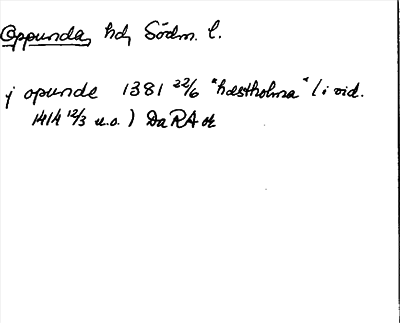 Oppunda, hd, Södm. l.
j opunde 1381 22/6 "hæstholma" (i vid.
1414 12/3 u.o.) Da RA or